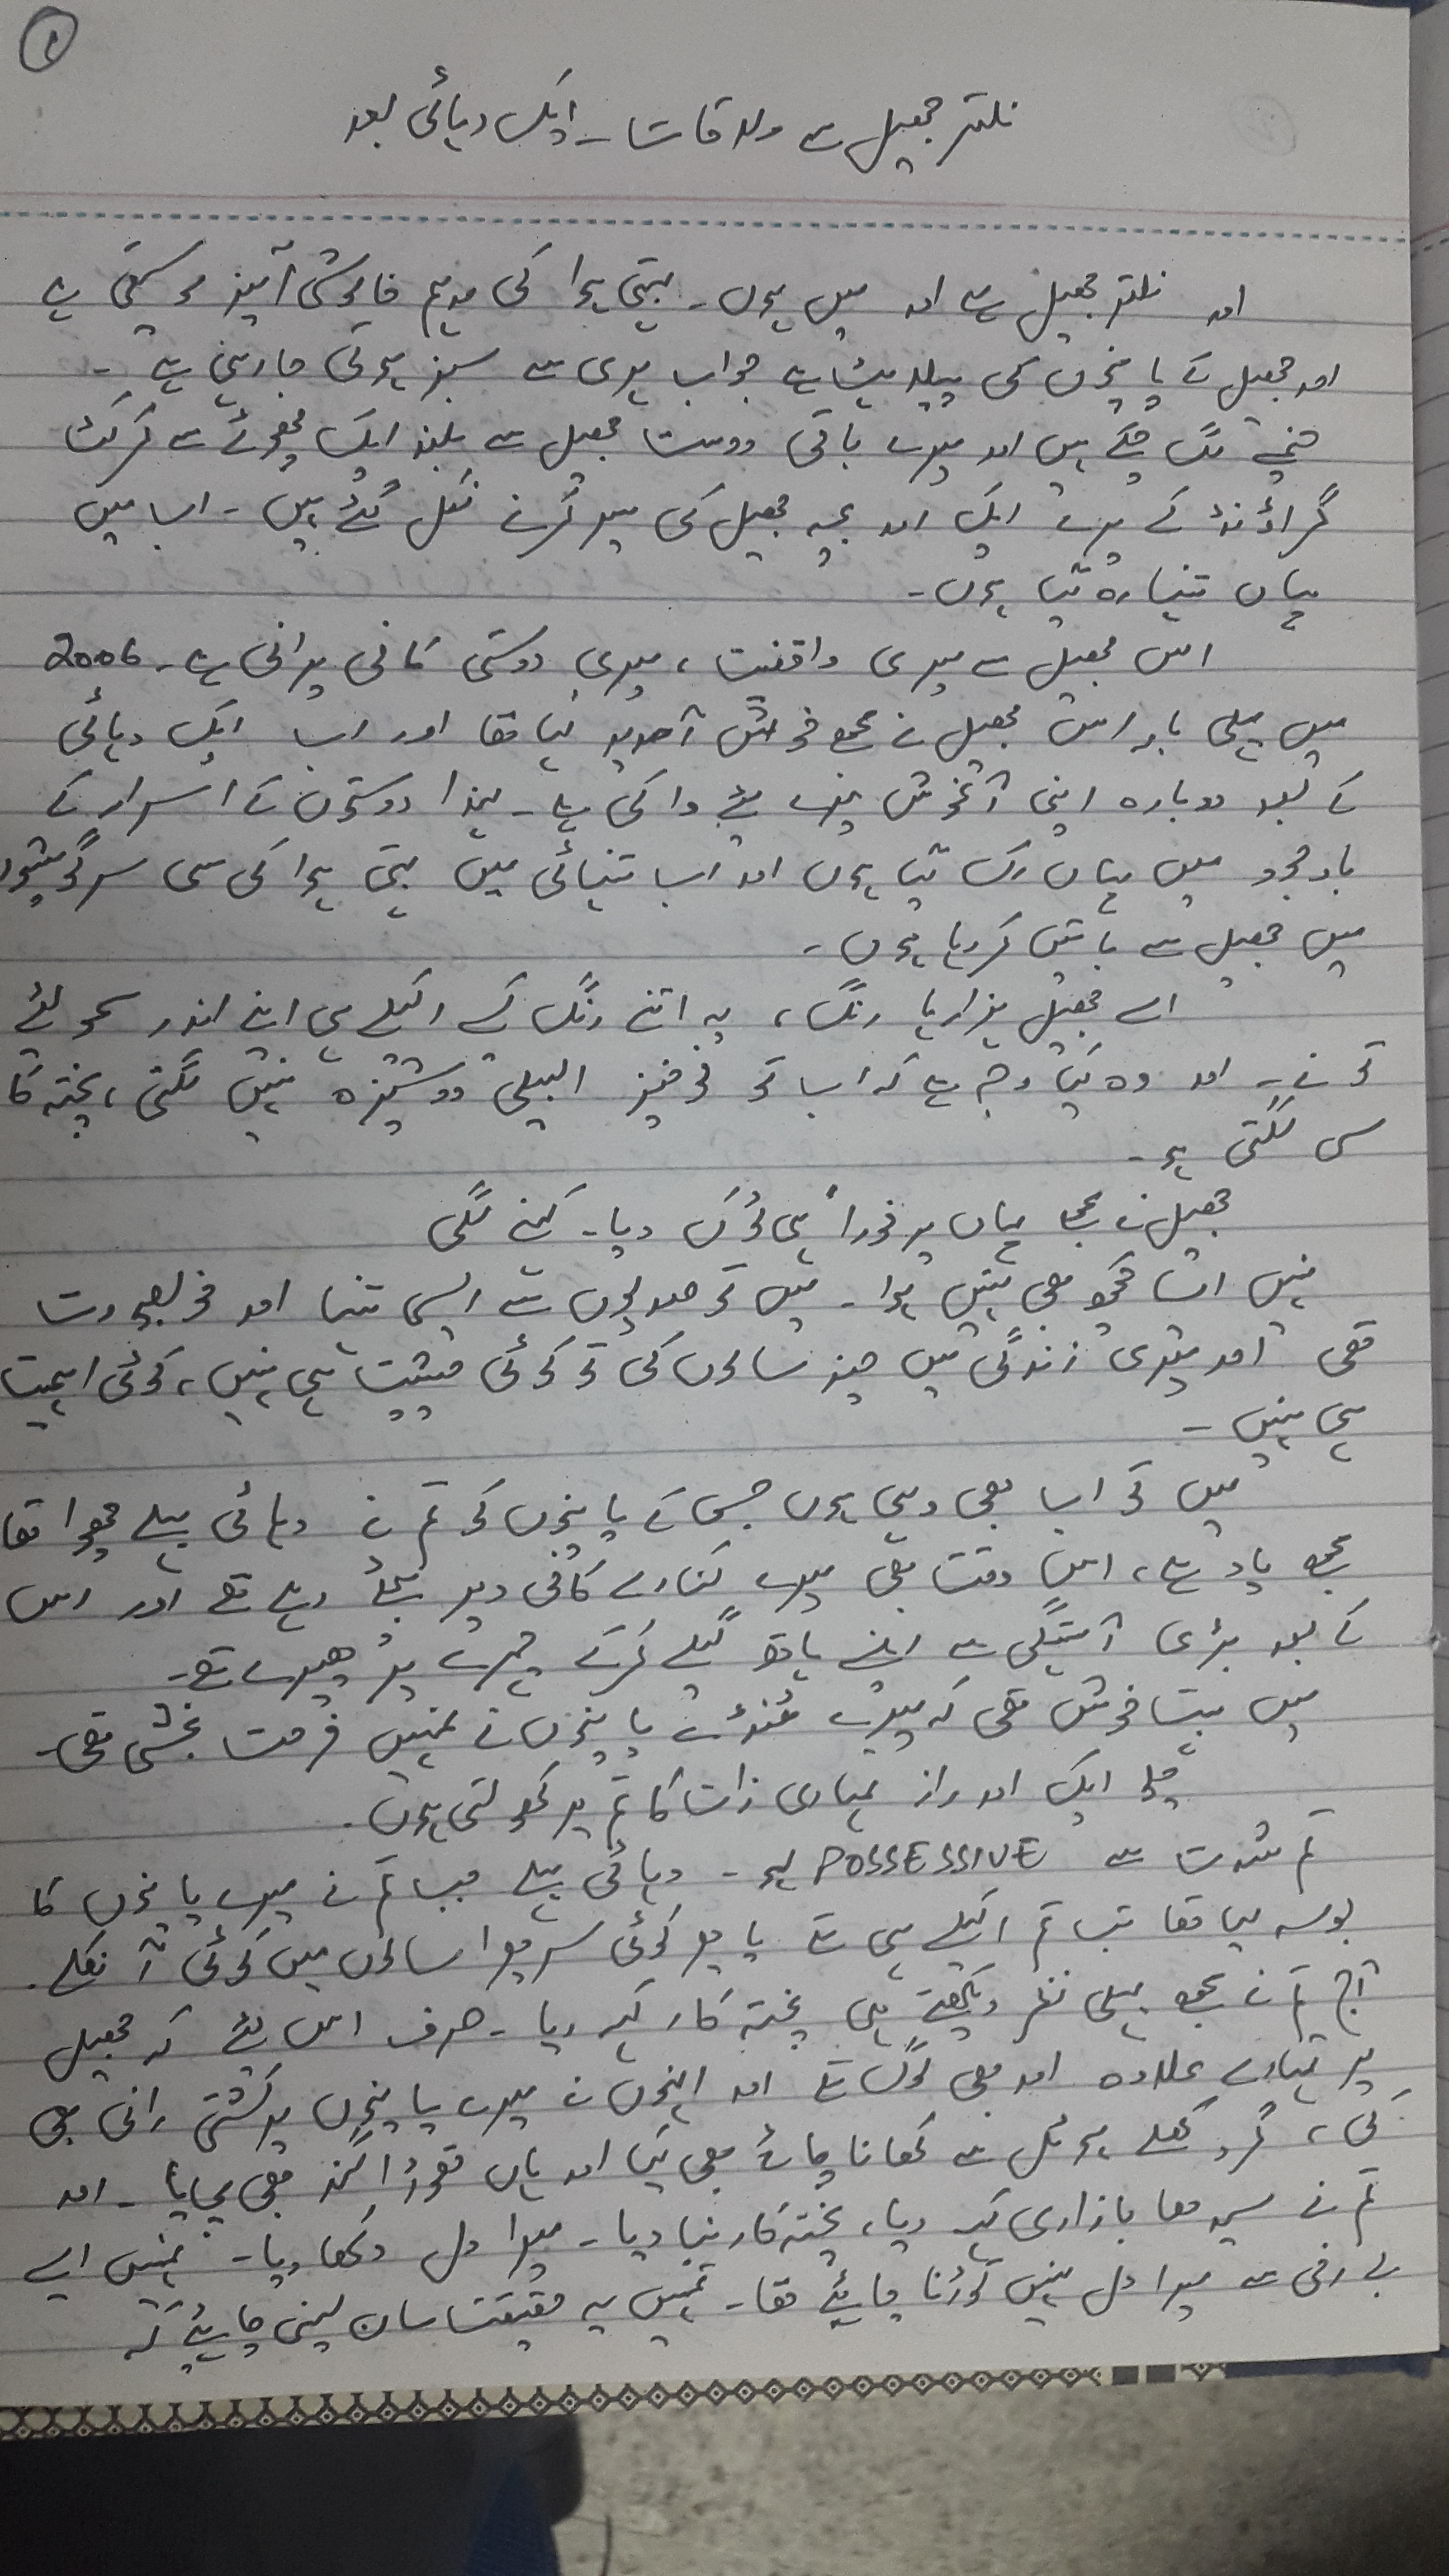 ۱
نلتر جھیل سے ملاقات ۔ ایک دہائی بعد
اور نلتر جھیل ہے اور میں ہوں ۔ بہتی ہوا کی مدہم خاموشی آمیز موسیقی ہے
اور جھیل کے پانیوں کی نیلاہٹ ہے جو اب ہری سے سبز ہوتی جا رہی ہے ۔
خیمے لگ چکے ہیں اور میرے باقی دوست جھیل سے بلند ایک چھوٹے سے کرکٹ
گراؤنڈ کے پرے ایک اور بچہ جھیل کی سیر کرنے نکل گئے ہیں ۔ اب میں
یہاں تنہا رہ گیا ہوں ۔
اس جھیل سے میری واقفیت ، میری دوستی کافی پرانی ہے ۔ 2006
میں پہلی بار اس جھیل نے مجھے خوش آمدید کہا تھا اور اب ایک دہائی
کے بعد دوبارہ اپنی آغوش میرے لئے وا کی ہے ۔ لہذا دوستوں کے اسرار کے
باوجود میں یہاں رک گیا ہوں اور اب تنہائی میں بہتی ہوا کی سی سرگوشیوں
میں جھیل سے باتیں کر رہا ہوں ۔
اے جھیل ہزارہا رنگ ، یہ اتنے رنگ کیسے اکیلے ہی اپنے اندر سمو لئے
تو نے ۔ اور وہ کیا وجہ ہے کہ اب تو نوخیز البیلی دوشیزہ نہیں لگتی ، پختہ کار
سی لگتی ہو ۔
جھیل نے مجھے یہاں پر فوراً ہی ٹوک دیا ۔ کہنے لگی
نہیں ایسا کچھ بھی نہیں ہوا ۔ میں تو صدیوں سے ایسی تنہا اور خوبصورت
تھی اور میری زندگی میں چند سالوں کی تو کوئی حیثیت ہی نہیں ، کوئی اہمیت
ہی نہیں ۔
میں تو اب بھی وہی ہوں جس کے پانیوں کو تم نے دہائی پہلے چھوا تھا
مجھے یاد ہے ، اس وقت بھی میرے کنارے کافی دیر بیٹھے رہے تھے اور اس
کے بعد بڑی آہستگی سے اپنے ہاتھ گیلے کرکے چہرے پر پھیرے تھے ۔
میں بہت خوش تھی کہ میرے ٹھنڈے پانیوں نے تمہیں فرحت بخشی تھی ۔
چلو ایک اور راز تمہاری ذات کا تم پر کھولتی ہوں ۔
تم شدت سے POSSESSIVE ہو ۔ دہائی پہلے جب تم نے میرے پانیوں کا
بوسہ لیا تھا تب تم اکیلے ہی تھے یا پھر کوئی سر پھرا سالوں میں کوئی آ نکلے ۔
آج تم نے مجھے پہلی نظر دیکھتے ہی پختہ کار کہہ دیا ۔ صرف اس لئے کہ جھیل
پر تمہارے علاوہ اور بھی لوگ تھے اور انہوں نے میرے پانیوں پر کشتی رانی بھی
کی ، گرد کھلے ہوٹل سے کھانا چائے بھی پیا اور ہاں تھوڑا گند بھی مچایا ۔ اور
تم نے سیدھا بازاری کہہ دیا ، پختہ کار بنا دیا ۔ میرا دل دکھا دیا ۔ تمہیں ایسے
بے رخی سے میرا دل نہیں توڑنا چاہئے تھا ۔ تمہیں یہ حقیقت مان لینی چاہئے کہ